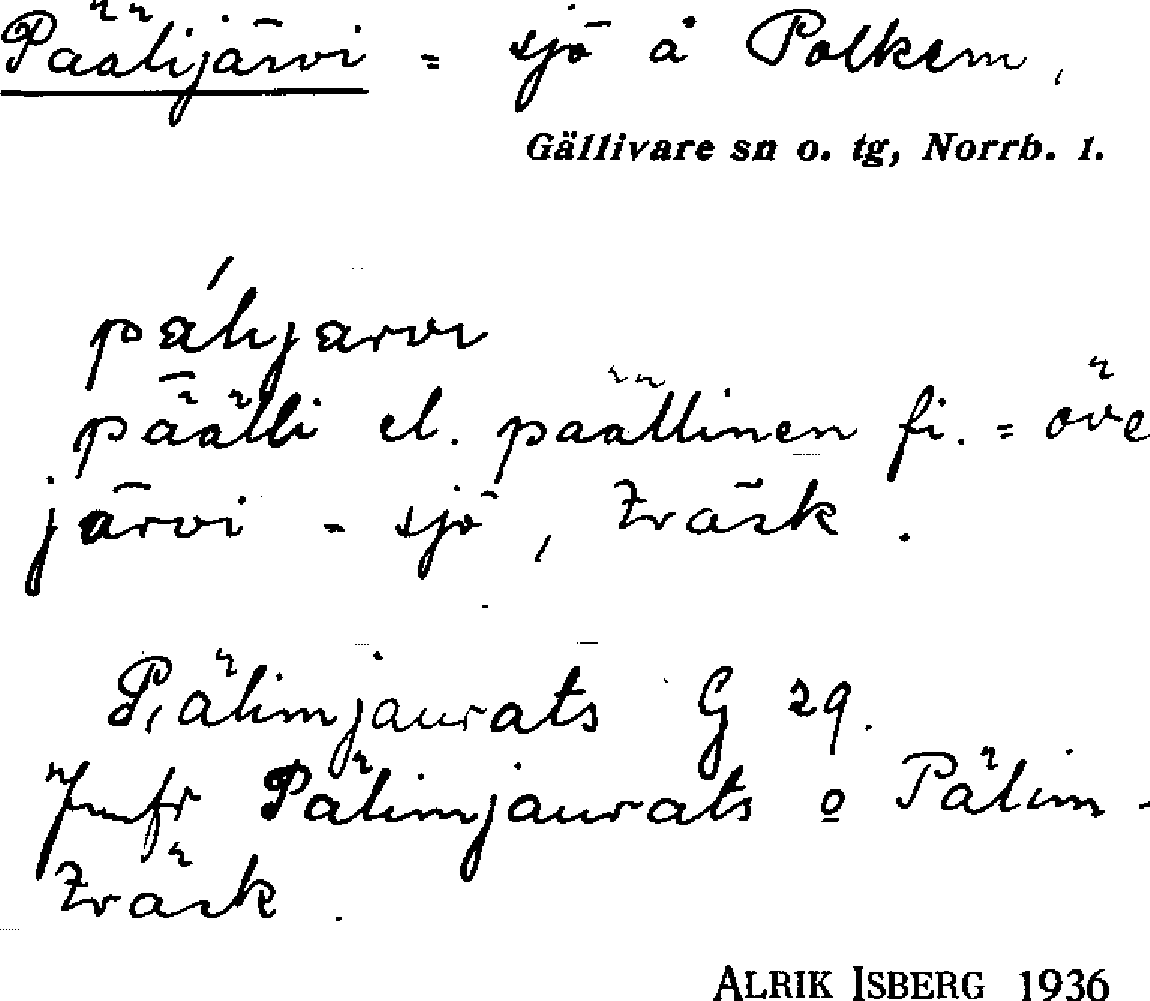 Päälijärvi = sjö å Polkem,
Gällivare sn o. tg, Norrb. l.
pálijarvi
päälli el. päällinen fi. = öve
järvi - sjö, träsk.
Pälimjaurats G 29.
Jmfr Pälimjaurats o Pälim-
träsk.
ALRIK ISBERG 1936